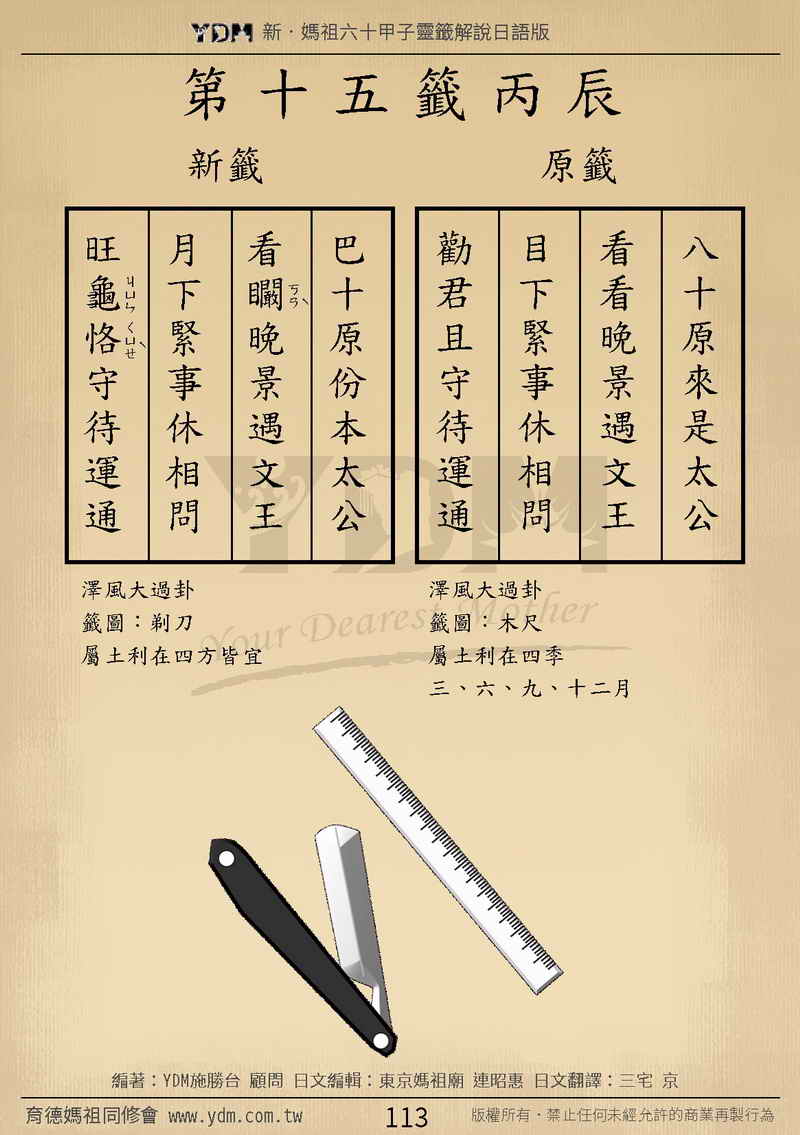 YDM 新．媽祖六十甲子靈籤解說日語版
第十五籤丙辰
原籤
八十原來是太公
看看晚景遇文王
目下緊事休相問
勸君且守待運通
澤風大過卦
籤圖：木尺
屬土利在四季
三、六、九、十二月
新籤
巴十原份本太公
看矙晚景遇文王
ㄎㄢˋ
月下緊事休相問
旺龜恪守待運通
ㄐㄩㄣ ㄑㄩㄝˋ
澤風大過卦
籤圖：剃刀
屬土利在四方皆宜
YDM
Your Dearest Mother
編著：YDM施勝台 顧問 日文編輯：東京媽祖廟 連昭惠 日文翻譯：三宅 京
育德媽祖同修會 www.ydm.com.tw
113
版權所有．禁止任何未經允許的商業再製行為